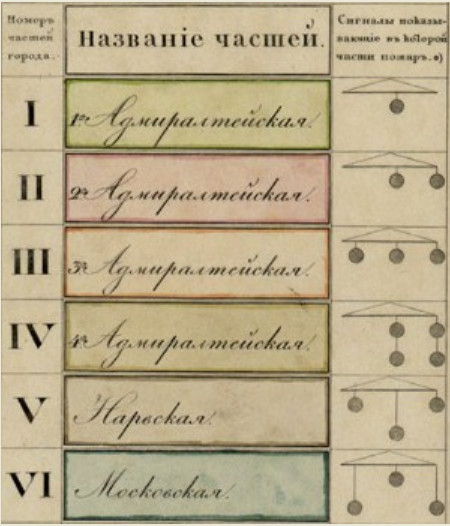 Номеръ частей города.
Названіе частей.
Сигналы показы-
вающіе въ которой
части пожаръ. *)
I
1я Адмиралтейская.
II
2я Адмиралтейская.
III
3я Адмиралтейская.
IV
4я Адмиралтейская.
V
Нарвская.
VI
Московская.